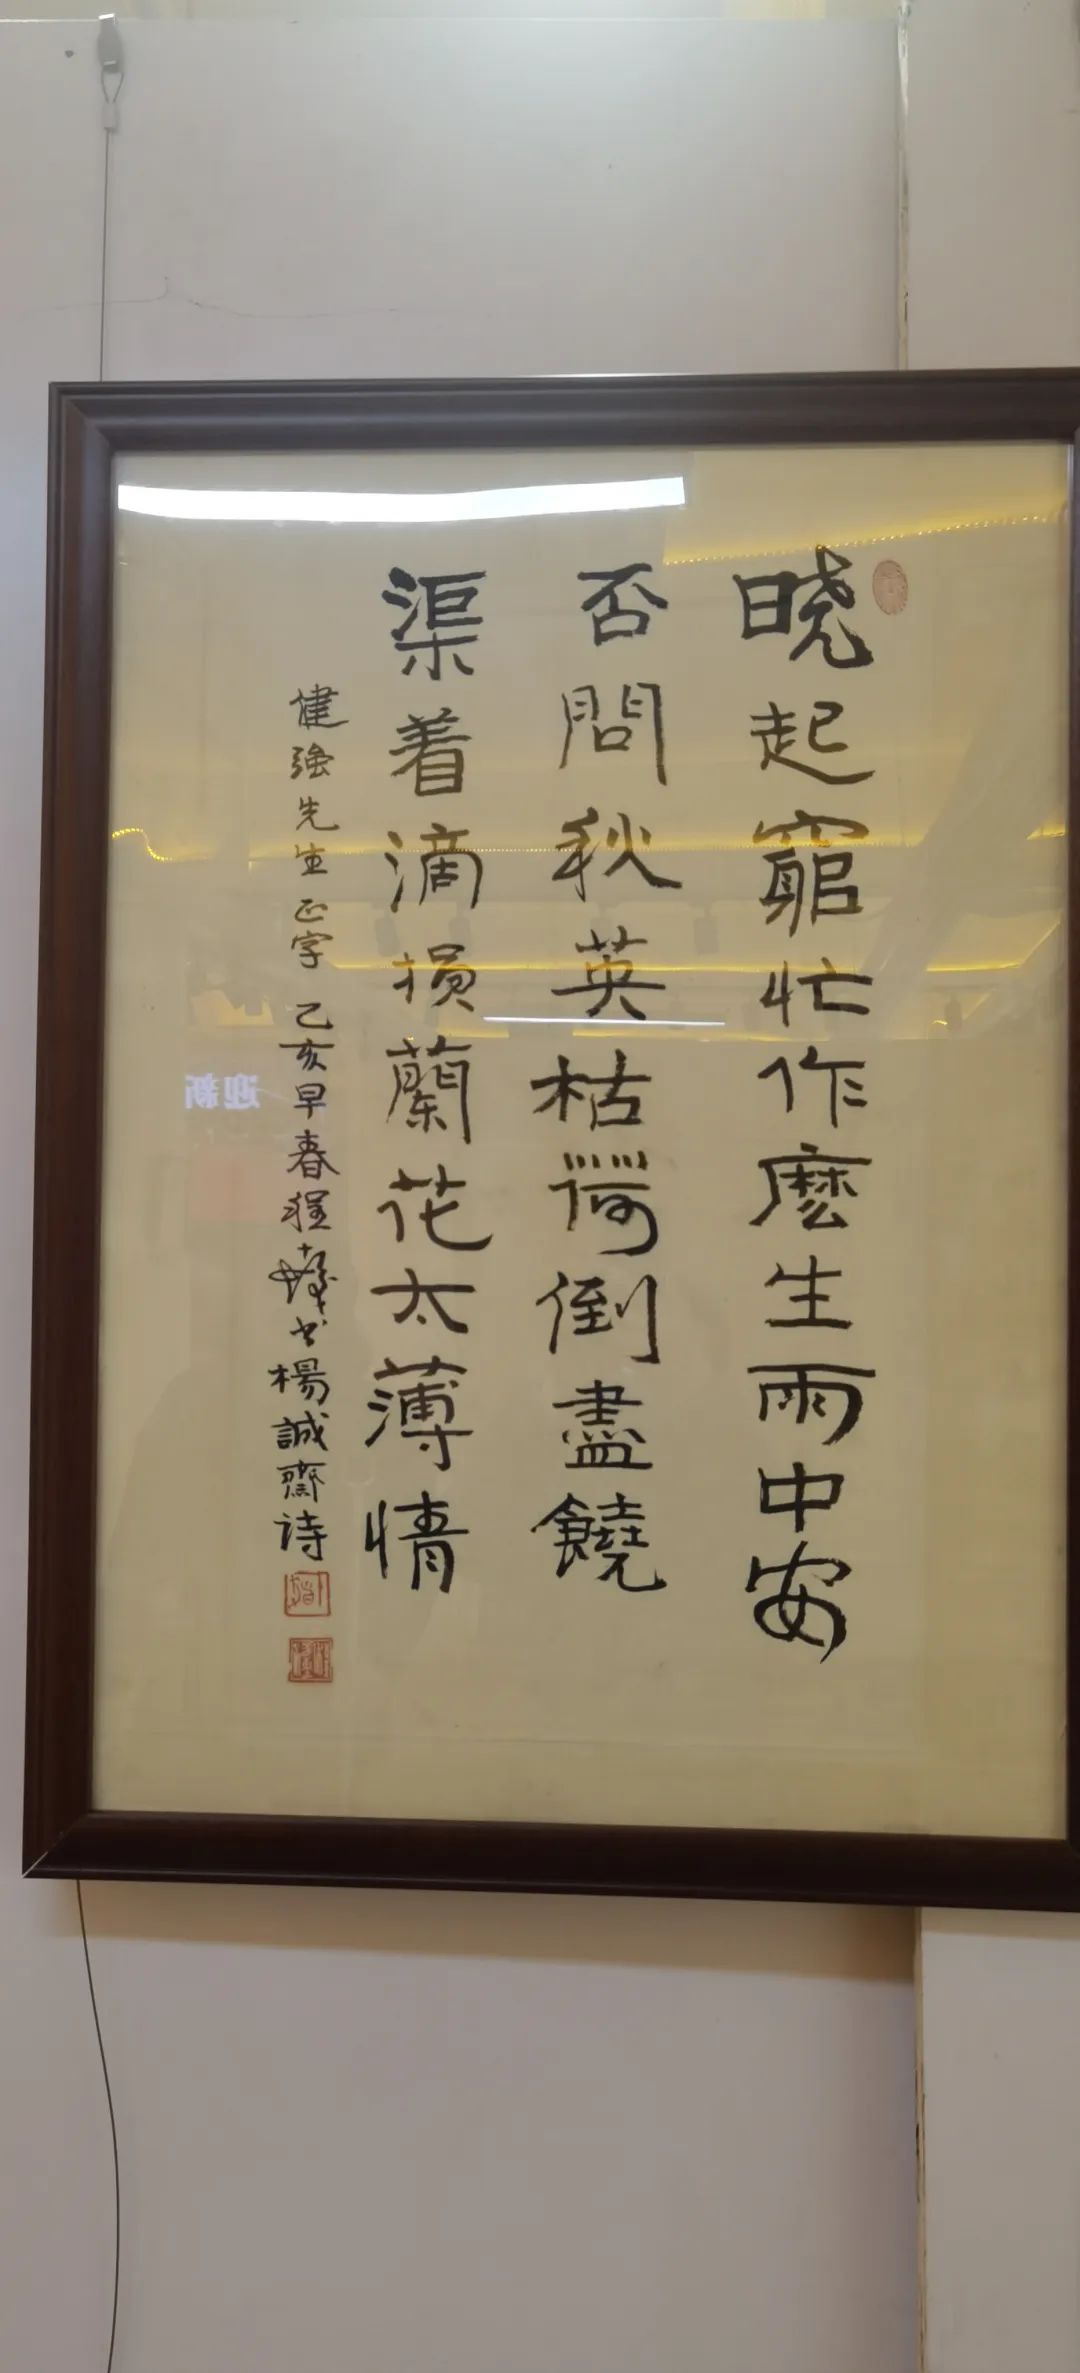 晓起窮忙作麼生雨中安
否問秋英枯荷倒盡饒
渠着滴損蘭花太薄情
健強先生正字 乙亥早春程 书楊誠齋诗
迎新